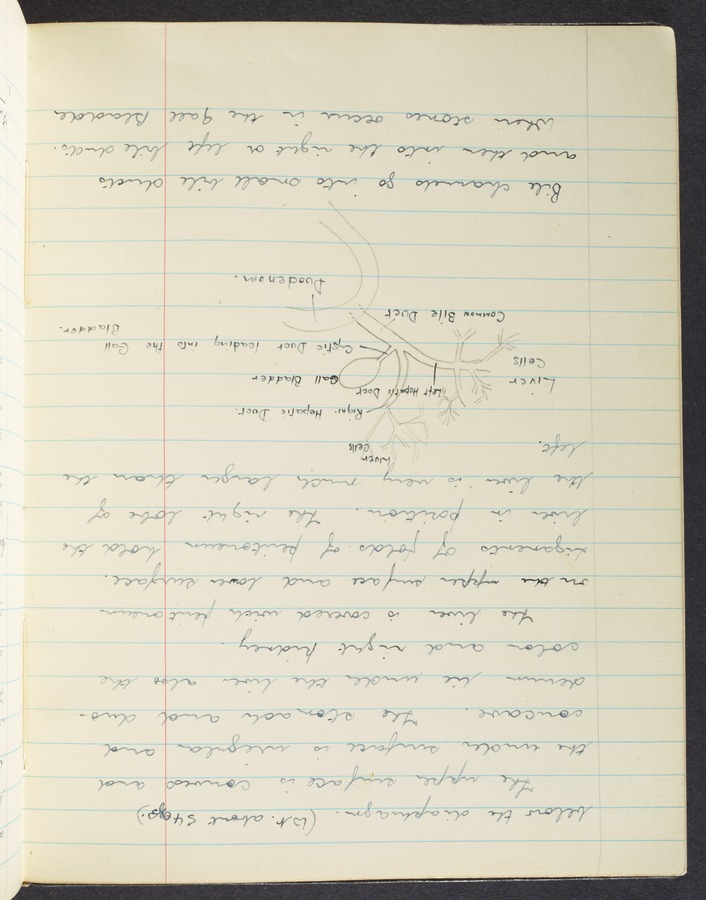 below the diaphragm. (Wt. about 54ozs.)
The upper surface is convex and
the under surface is irregular and
concave. The stomach and duo-
denum lie under the liver also the
colon and right kidney.
The liver is covered with peritoneum
on the upper surface and lower surface.
Ligaments of folds of peritoneum hold the
liver in position. The right lobe of
the liver is very much larger than the
left.
Liver
Cells
Right Hepatic Duct.
Left Hepatic Duct
Liver
Cells
Gall Bladder
Cystic Duct leading into the Gall
Bladder.
Common Bile Duct
Duodenum.
Bile channels go into small bile ducts
and then into the right or left bile ducts.
When stones occur in the Gall Bladder